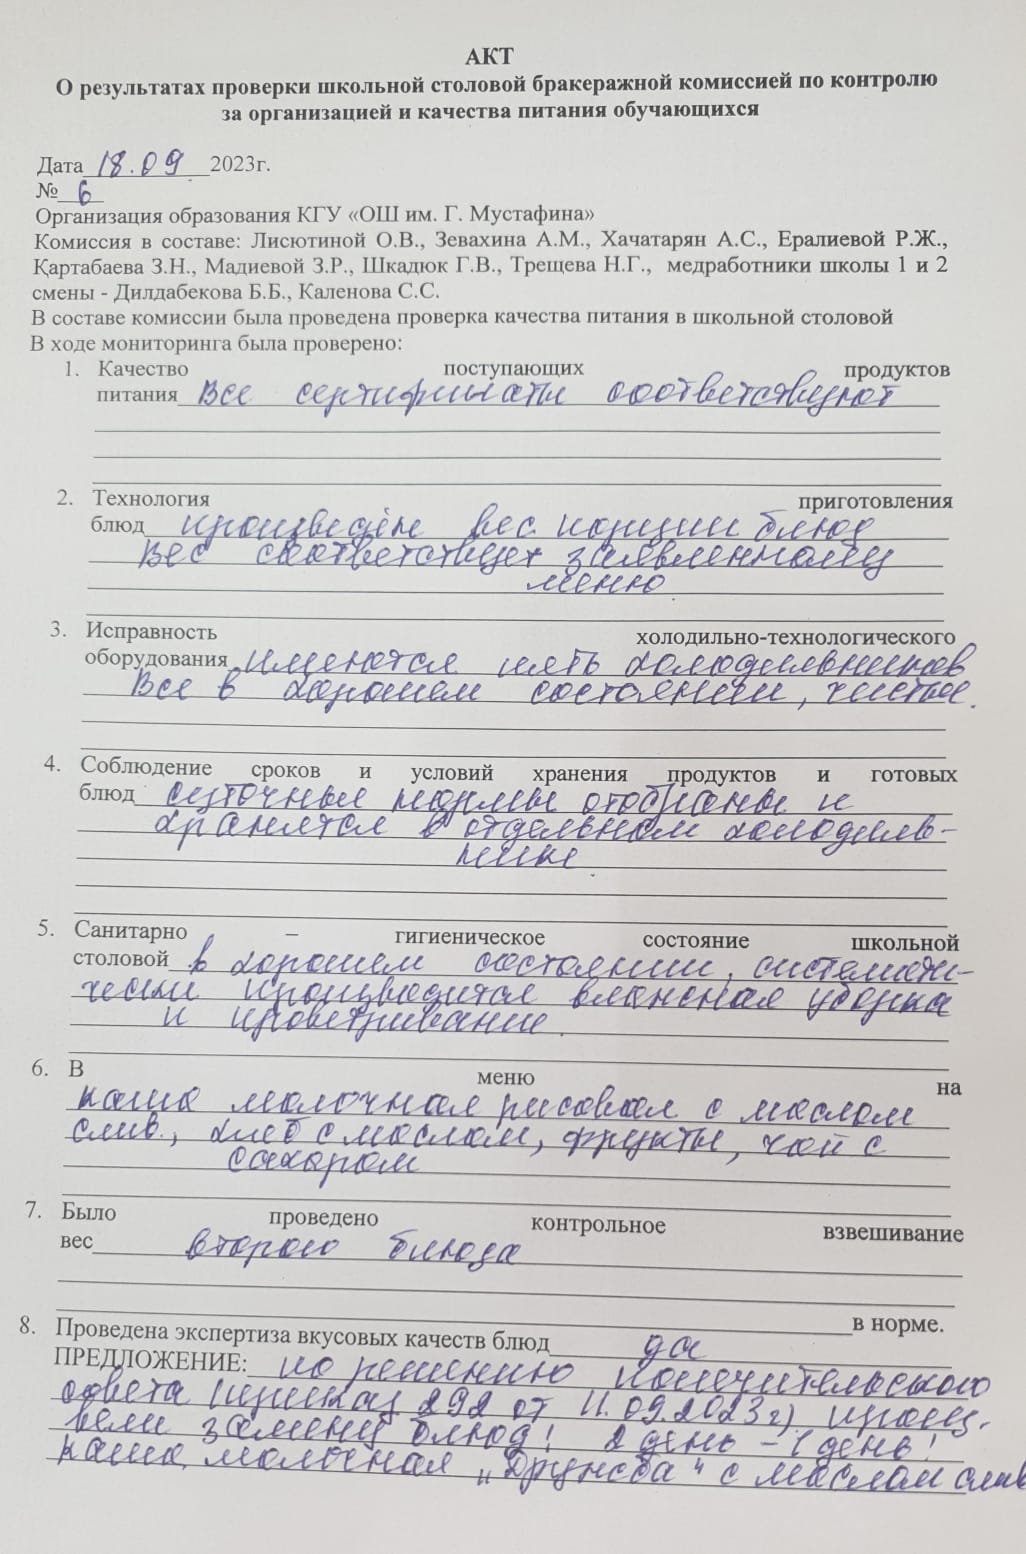 АКТ
О результатах проверки школьной столовой бракеражной комиссией по контролю
за организацией и качества питания обучающихся
Дата 18.09 2023г.
№ 6
Организация образования КГУ «ОШ им. Г. Мустафина»
Комиссия в составе: Лисютиной О.В., Зевахина А.М., Хачатарян А.С., Ералиевой Р.Ж.,
Қартабаева З.Н., Мадиевой З.Р., Шкадюк Г.В., Трещева Н.Г., медработники школы 1 и 2
смены - Дилдабекова Б.Б., Каленова С.С.
В составе комиссии была проведена проверка качества питания в школьной столовой
В ходе мониторинга была проверено:
1. Качество поступающих продуктов
питания Все сертификаты соответствуют
2. Технология приготовления
блюд произведён вес порции блюд
Вес соответствует заявленному
меню
3. Исправность холодильно-технологического
оборудования имеются пять холодильников
Все в хорошем состоянии, чистые.
4. Соблюдение сроков и условий хранения продуктов и готовых
блюд суточные нормы отобраны и
хранятся в отдельном холодиль-
нике
5. Санитарно – гигиеническое состояние школьной
столовой в хорошем состоянии, системати-
чески производится влажная уборка
и проветривание.
6. В меню на
каша молочная рисовая с маслом
слив., хлеб с маслом, фрукты, чай с
сахаром
7. Было проведено контрольное взвешивание
вес второго блюда
в норме.
8. Проведена экспертиза вкусовых качеств блюд да
ПРЕДЛОЖЕНИЕ: по решению попечительского
совета (приказ 292 от 11.09.2023г) произ-
вели замену блюд! 2 день – 1 день!
каша молочная "Дружба" с маслом слив